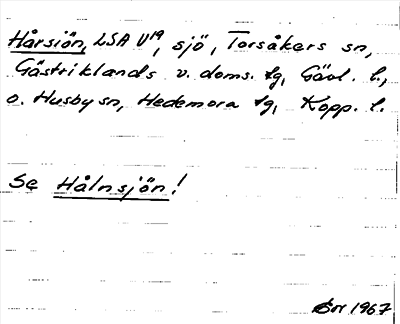 Hårsiön, LSA U19, sjö, Torsåkers sn,
Gästriklands v. doms. tg, Gävl. l.,
o. Husby sn, Hedemora tg, Kopp. l.
Se Hålnsjön!
1967